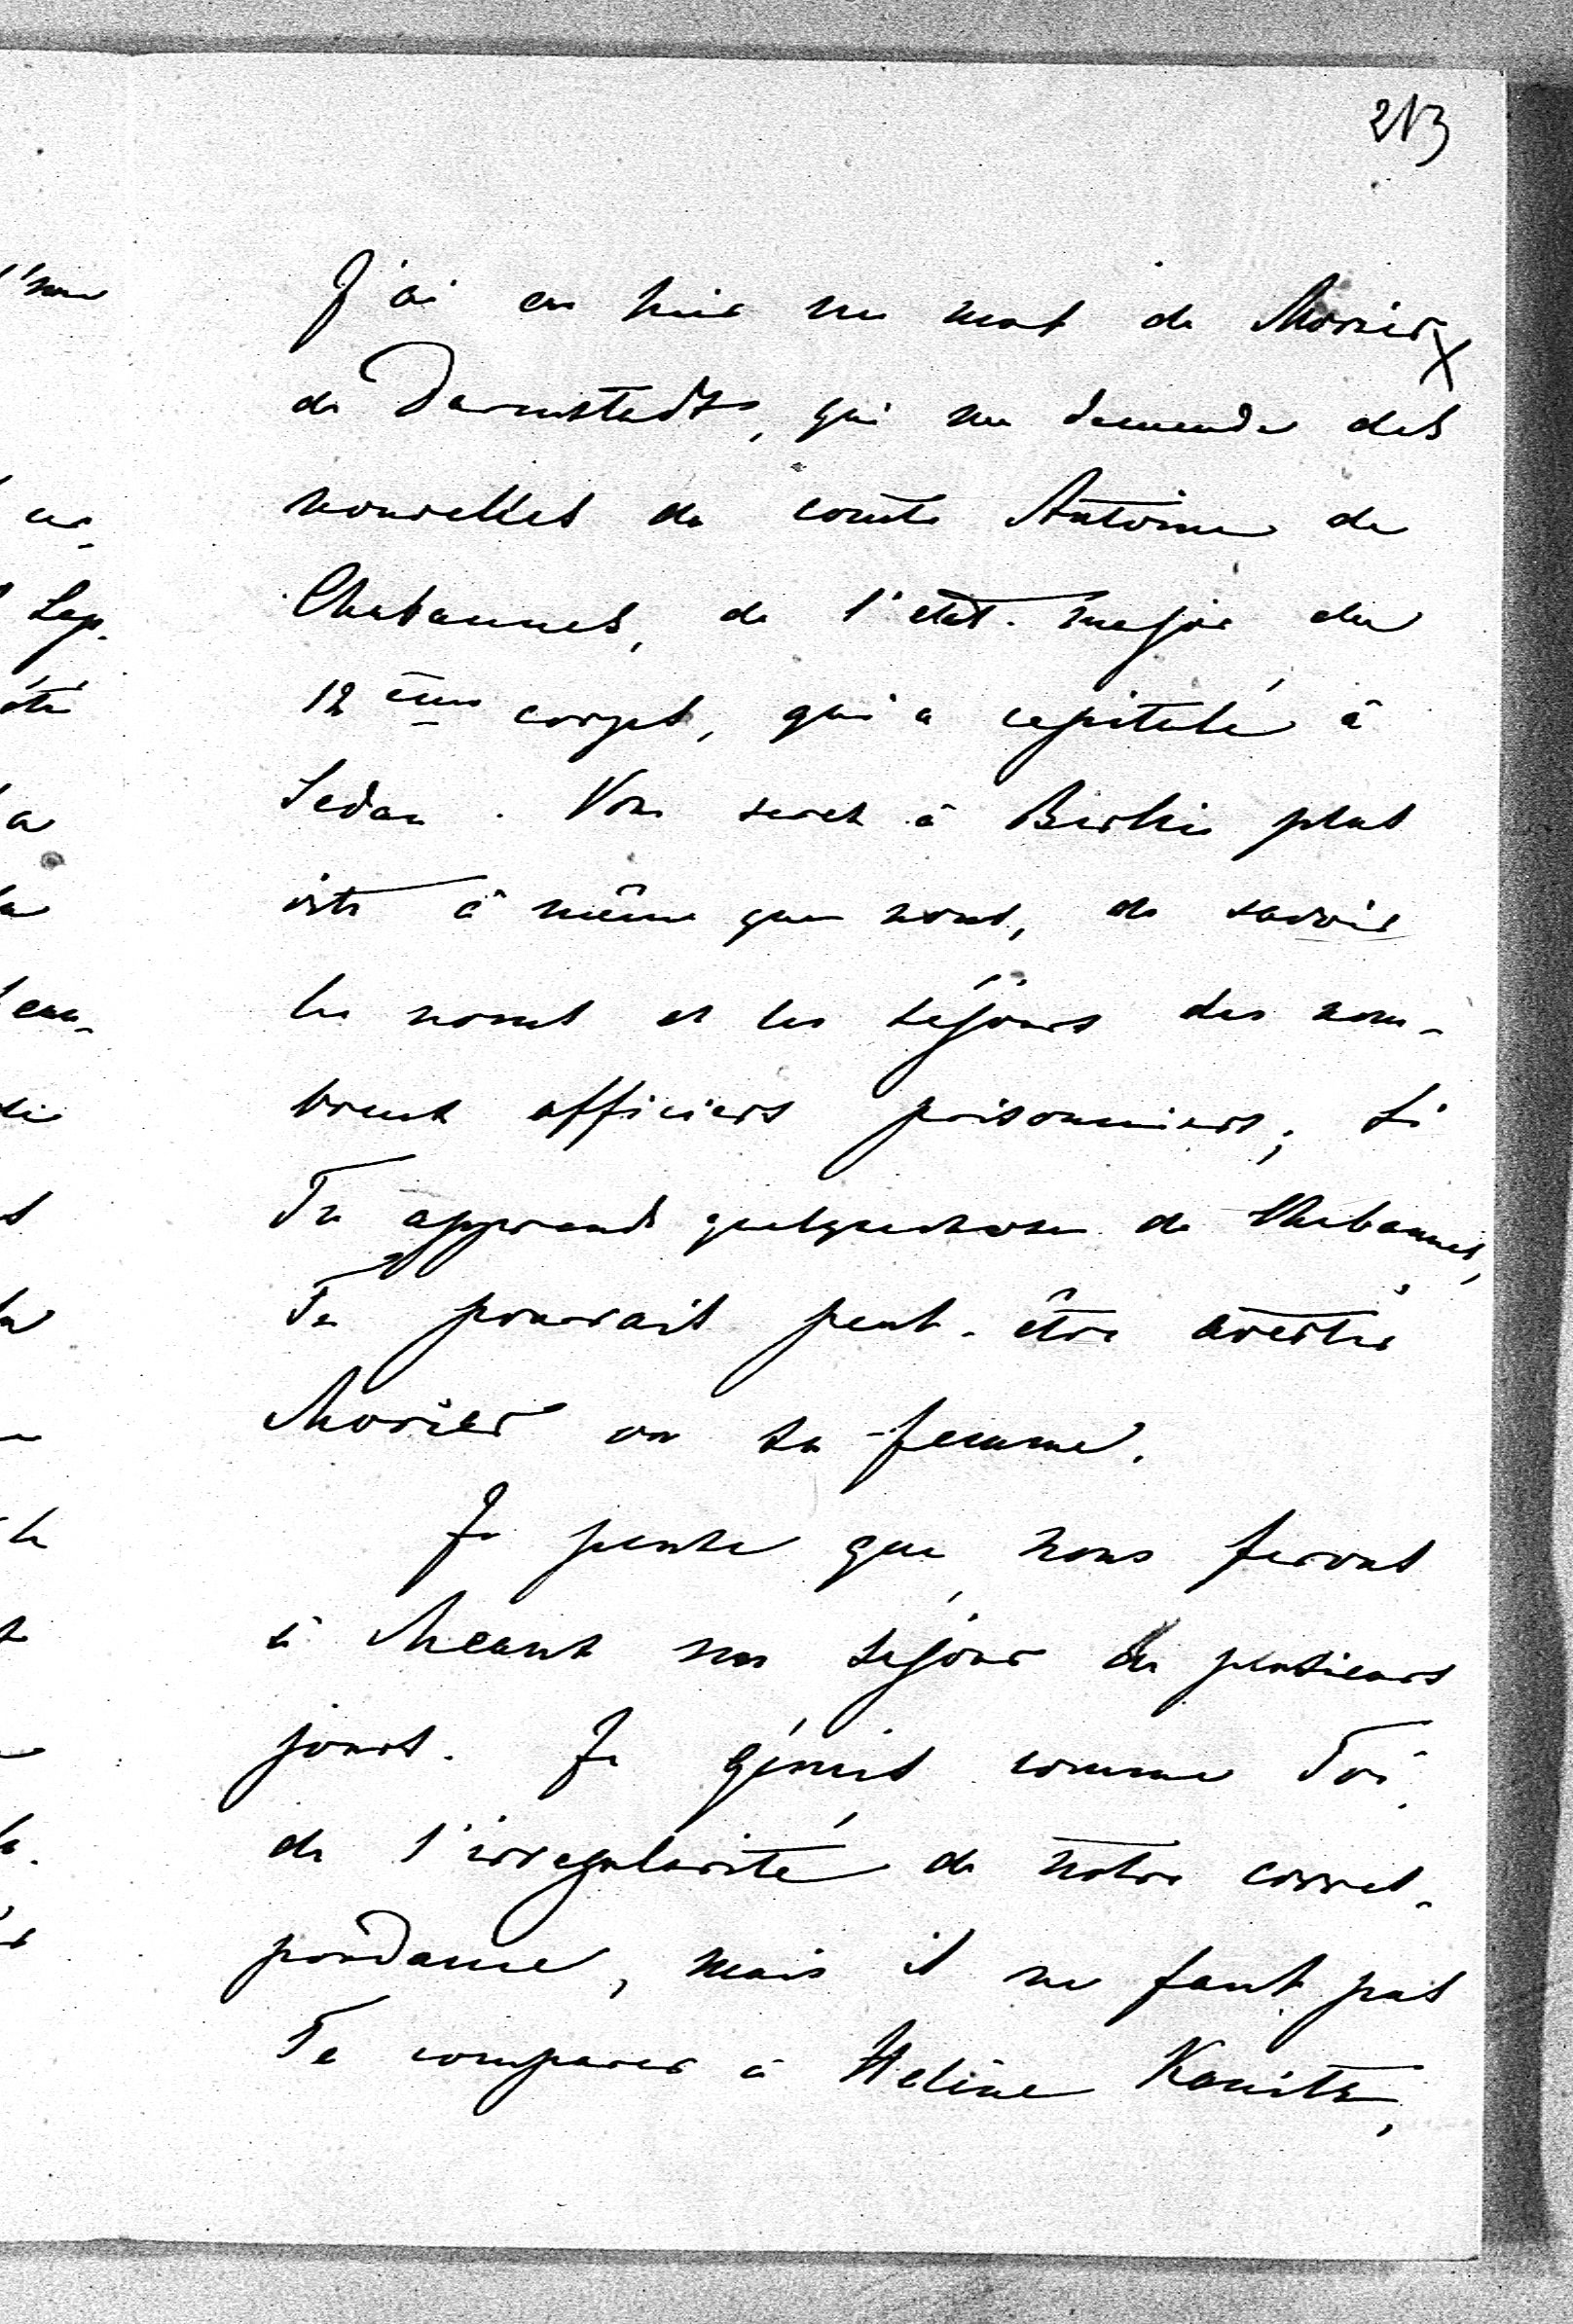 213
J'ai eu hier un mot de Morier
de Darmstadt, qui me demande des
nouvelles du comte Antoine de
Chabannes, de l'état-major du
12 ème corps, qui a capitulé à
Sedan. Vous serez à Berlin plus
vite à même que nous, de savoir
les noms et les séjours des nom-
breux officiers prisonniers; si
Tu apprends quelquechose de Chabannes,
Tu pourrais peut-être avertir
Morier ou sa femme.
Je pense que nous ferons
à Meaux un séjour de plusieurs
jours. Je gémis comme Toi
de l'irrégularité de notre corres-
pondance, mais il ne faut pas
Te comparer à Hélène Kanitz,